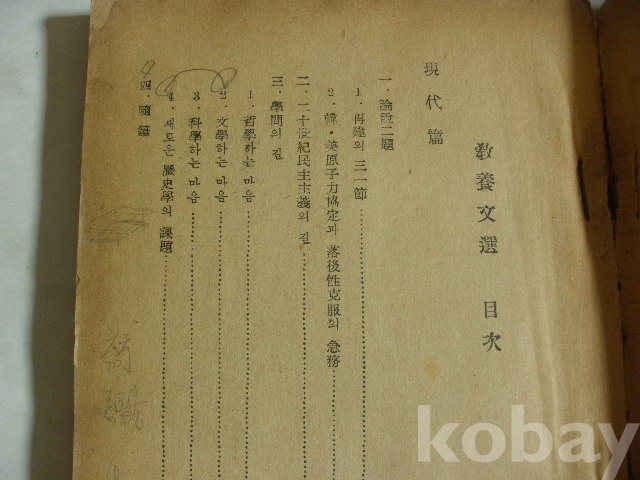 敎養文選 目次
現代篇
一. 論說二題
1. 再建의 三一節
2. 韓·美原子力協定과 落後性克服의 急務
二. 二十世紀民主主義의 길
三. 學問의 길
1. 哲學하는 마음
2. 文學하는 마음
3. 科學하는 마음
4. 새로운 歷史學의 課題
四. 隨筆
kobay